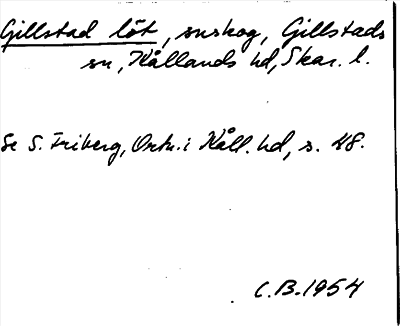 Gillstad löt, snskog, Gillstads
sn, Kållands hd, Skar. l.
Se S. Friberg, Ortn. i Kåll. hd, s. 48.
C.B. 1954